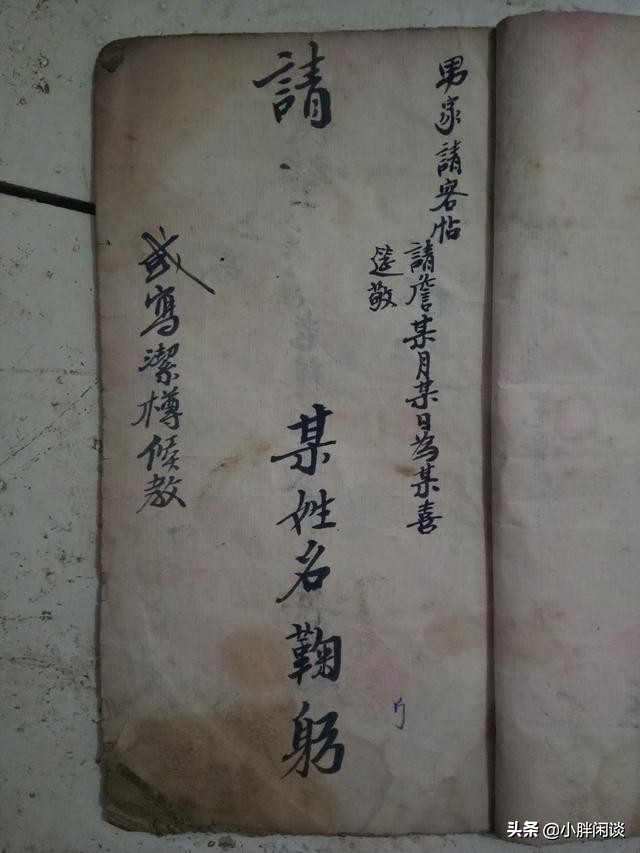 男家請客帖
請詹某月某日為某喜
筵敬
請
某姓名鞠躬
或寫潔樽候教
头条 @小胖闲谈